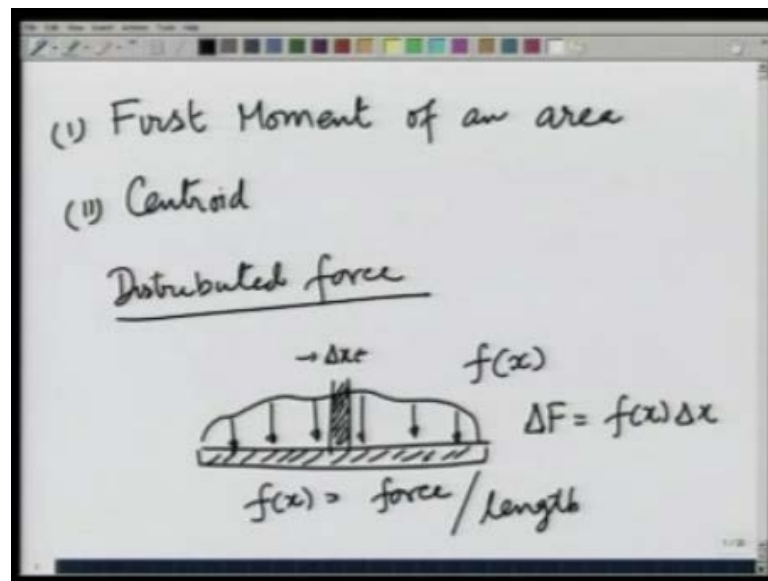 (I) First Moment of an area
(II) Centroid
Distributed force
→ Δx ←
f(x)
ΔF = f(x) Δx
f(x) = force / length